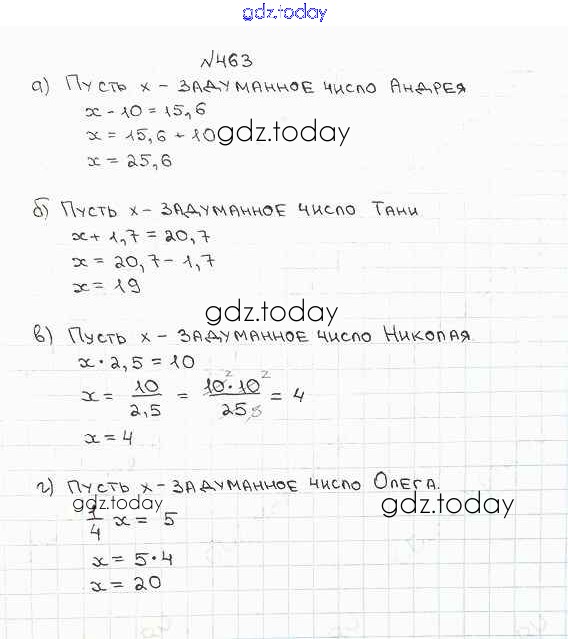 gdz.today
№463
а) Пусть x – задуманное число Андрея
x - 10 = 15,6
x = 15,6 + 10
gdz.today
x = 25,6
б) Пусть x – задуманное число Тани
x + 1,7 = 20,7
x = 20,7 - 1,7
x = 19
gdz.today
в) Пусть x – задуманное число Николая
x · 2,5 = 10
x = 10/2,5 = 10·10/25 = 4
x = 4
г) Пусть x – задуманное число Олега.
gdz.today
gdz.today
1/4 x = 5
x = 5·4
x = 20